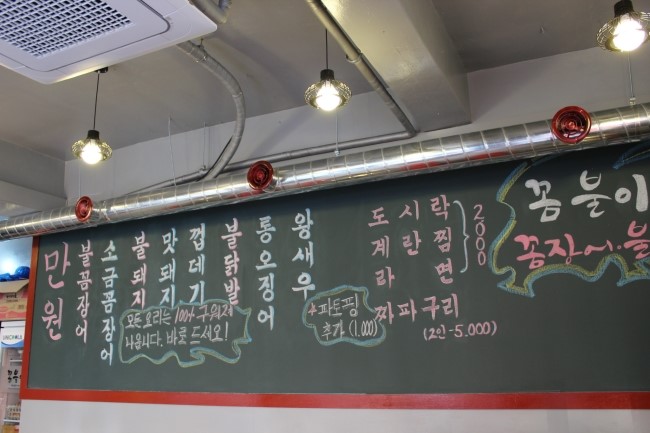 만원
불꼼장어
소금꼼장어
불돼지
맛돼지
껍데기
불닭발
통오징어
왕새우
모든 요리는 100% 구워져
나옵니다. 바로 드세요!
도시락
계란찜
라면
2000
+ 파토핑
추가 (1,000)
짜파구리
(2인-5.000)
꼼불이
꼼장어.불